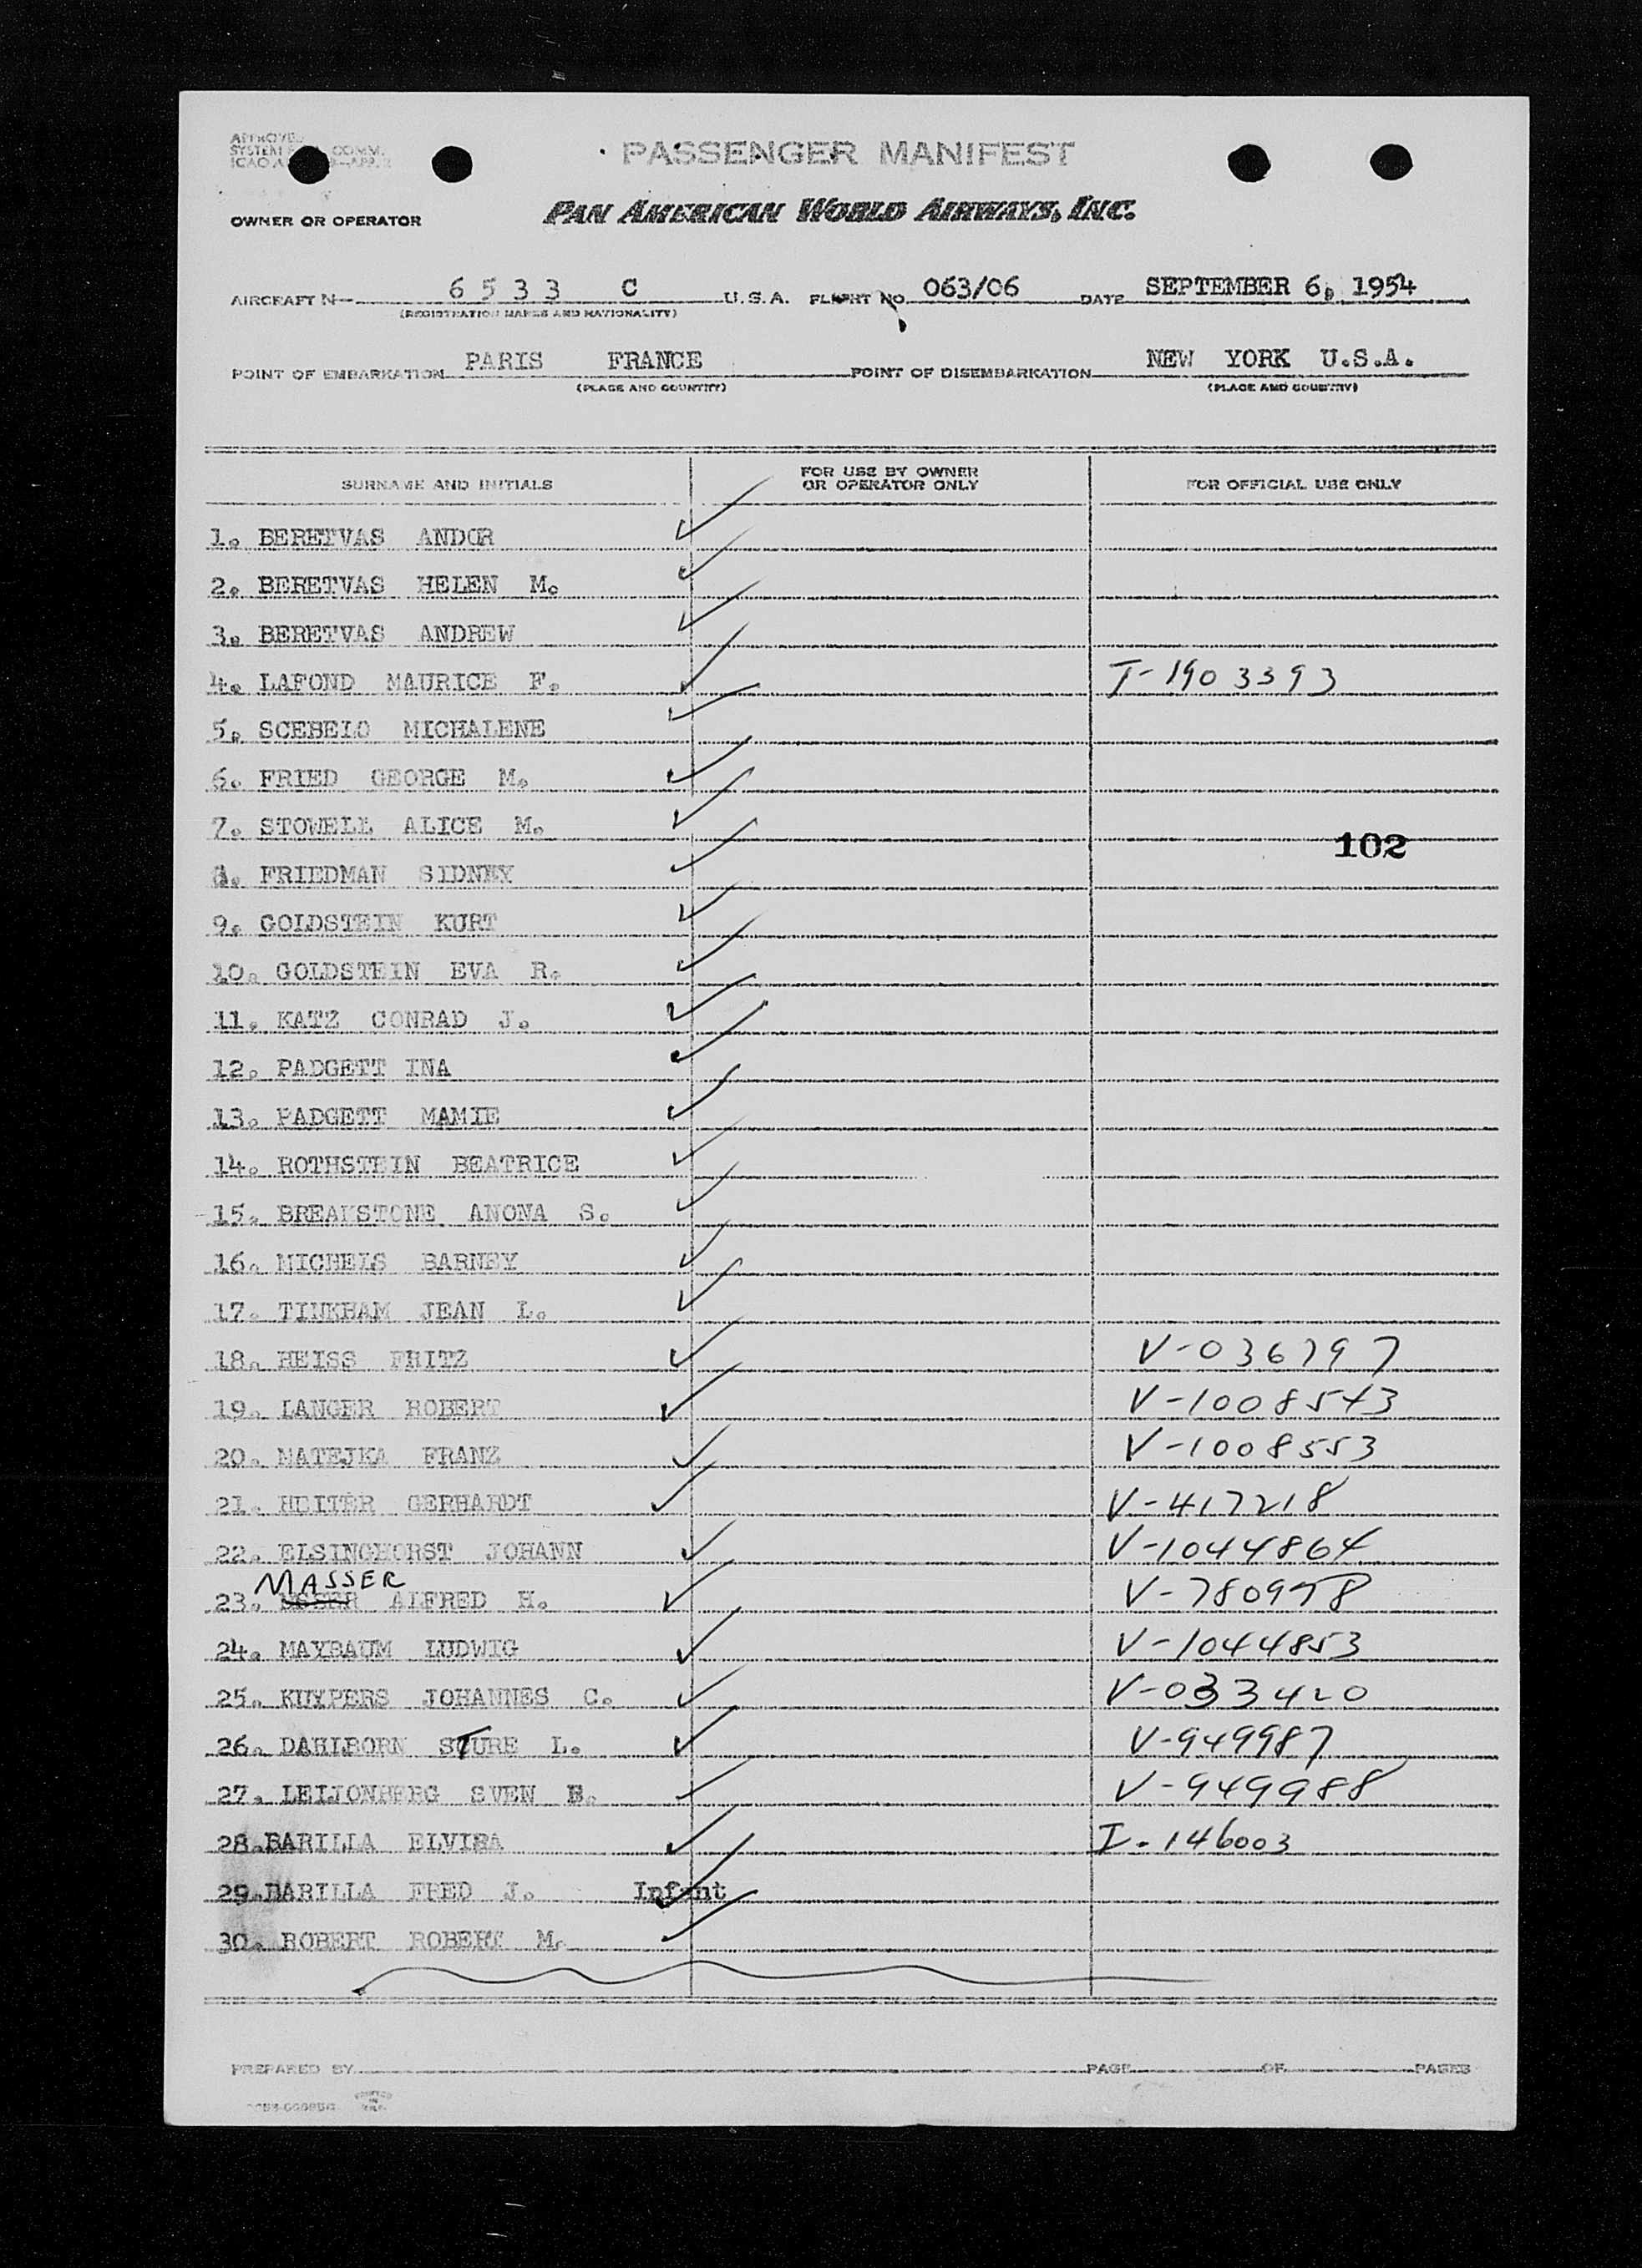 PASSENGER MANIFEST
OWNER OR OPERATOR PAN AMERICAN WORLD AIRWAYS, INC.
AIRCRAFT N— 6533 C U.S.A. FLIGHT NO. 063/06 DATE SEPTEMBER 6, 1954
(REGISTRATION MARKS AND NATIONALITY)
POINT OF EMBARKATION PARIS FRANCE POINT OF DISEMBARKATION NEW YORK U.S.A.
(PLACE AND COUNTRY) (PLACE AND COUNTRY)
SURNAME AND INITIALS FOR USE BY OWNER OR OPERATOR ONLY FOR OFFICIAL USE ONLY
1. BERETVAS ANDOR
2. BERETVAS HELEN M.
3. BERETVAS ANDREW
4. LAFOND MAURICE F. T-1903393
5. SCEBELO MICHALENE
6. FRIED GEORGE M.
7. STOWELL ALICE M.
102
8. FRIEDMAN SIDNEY
9. GOLDSTEIN KURT
10. GOLDSTEIN EVA R.
11. KATZ CONRAD J.
12. PADGETT INA
13. PADGETT MAMIE
14. ROTHSTEIN BEATRICE
15. BREAKSTONE ANONA S.
16. MICHELS BARNEY
17. TINKHAM JEAN L.
18. HEISS FRITZ V-036797
19. LANGER ROBERT V-1008543
20. MATEJKA FRANZ V-1008553
21. GERHARDT V-417218
22. ELSINGHORST JOHANN V-1044864
MASSER
23. ALFRED H. V-780978
24. MAYBAUM LUDWIG V-1044853
25. KUYPERS JOHANNES C. V-033420
26. DAHLBORN STURE L. V-949987
27. LEIJONBERG SVEN E. V-949988
28. BARILLA ELVIRA I-146003
29. BARILLA FRED J. Infant
30. ROBERT ROBERT M.
PREPARED BY PAGE OF PAGES